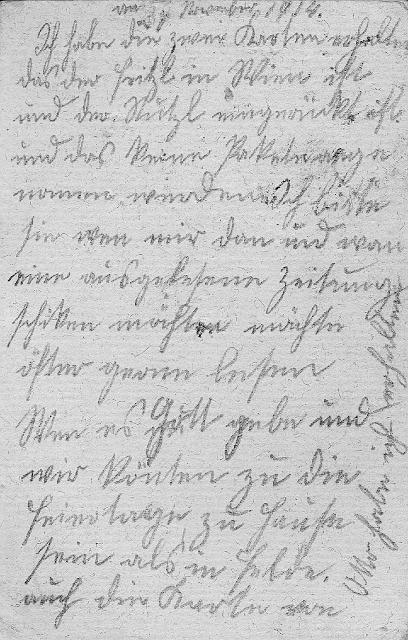 am 27 November 1914.
Ich habe die zwei Karten erhalten
das der Fritzl in Wien ist
und der Nutzl eingerückt ist
und das keine Pakete ange
nomen werden Ich bitte
sie wen mir dan und wan
eine ausgelesene Zeitung
schiken möchten möchte
öfter geren lesen
Wen es Gott gebe und
wir könten zu die
Feiertage zu Hause
sein als in Felde.
auch die Karte von
Otto habe ich erhalten